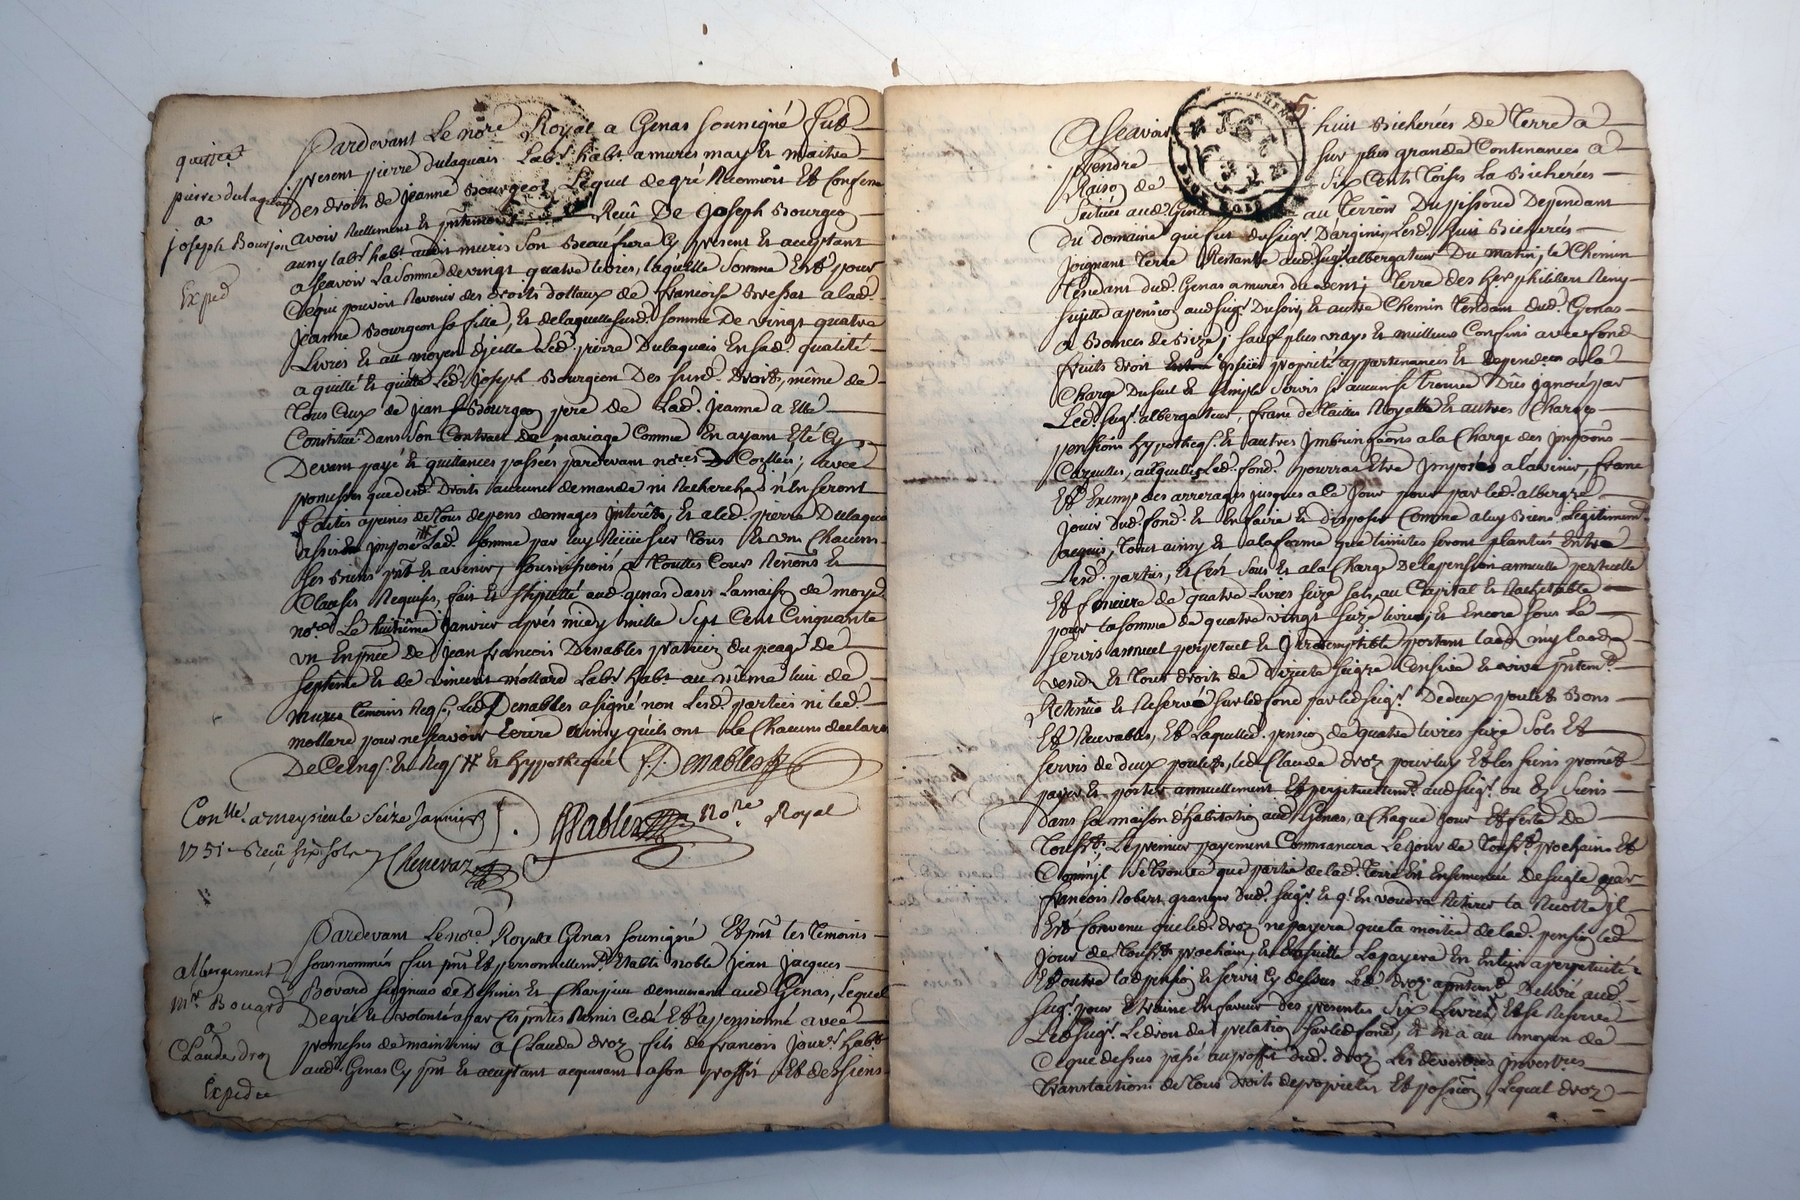 quittce
pierre dulaquais
a
joseph Bourjon
Exped
Pardevant Le nore Royal a Genas soussigné fut
present pierre dulaquais Labr habt a mures mary Et maitre
Des droits de jeanne Bourgeon, Lequel de gré Reconnoit Et Confesse
avoir Reellement Et Reçû De Joseph Bourgeon
labr habt audit muris son Beaufrere Cy present Et acceptant
asçavoir La Somme de vingt quatre livres, laquelle somme Est pour
Cequi pouvoit Revenir des droits dottaux de francoise Bressat a lad.
Jeanne Bourgeon sa fille, Et delaquelle susd. somme De vingt quatre
Livres Et au moyen Led. pierre Dulaquais En sad. qualité
a quitté Et quitte Led. joseph Bourgeon Des susd. Droits, même de
Tous Ceux de jean Bourgeon pere de Lad. jeanne a Elle
Constitué Dans son Contract de mariage Comme En ayant Eté Cy
Devant payé Et quittances passées pardevant nores avec
promesses que desd. Droits aucune demande ni Recherches n'En seront
faites a peines de Tous depens domages Interêts, Et a led. pierre Dulaquais
Lad. somme par luy Reçue sur Tous Et un Chacuns
ses Biens pnt Et avenir, soumissions a Touttes Cours Renons Et
Clauses Requises, fait Et aud Genas dans La maison de moyd.
nore Le huitième janvier après midy mille Sept Cent Cinquante
un En pnce de Jean francois Denables du peage de
septème Et de vincent mollard Labr habt au même lieu de
mures temoins Reqs, Led Denables a signé non Lesd. parties ni led.
mollard pour ne sçavoir Ecrire ainsy qu'ils ont Le Chacuns declaré
De Ce Enqs Et Reqs Et hypothequé f. Denables
Conlle a meysieu le Seize Janvier
1751 Reçu six sols Chenevaz
Pables Nore Royal
albergement
Mre Bouard
a
Claude Droz
Expediee
Pardevant Le nore Royal a Genas soussigné Et pnt les Temoins
sousnommés fut pnt Et personnellemt Etabli noble jean jacques
Bovard seigneur de Et Charpieu demeurant aud Genas, Lequel
De gré Et volonté a par Ces pntes Remis Cedé Et apensionné avec
promesses de maintenir a Claude droz fils de francois jourr habt
aud. Genas Cy pnt Et acceptant acquerant a son proffit Et des siens
Asçavoir huit Bicherées de Terre a
prendre sur plus grande Continances a
Raison de six Cents Toises La Bicherée
Scituée aud. Genas au Terroir Du Dependant
Du domaine qui fut du seigr Darginy, Lesd. huit Bicherées
joignant Terre Restante aud. seigr albergateur Du matin, le Chemin
Tendant dud. Genas a mures du vent; Terre des hers philibert Remy
sujette a pension aud. seigr Du soir, Et autre Chemin Tendant dud. Genas
a Bonces de Bize; sauf plus vrays Et meilleurs Confins avec fond
fruits droit propriété appartenances Et dependces a la
Charge Du seul Et simple servis si aucun se trouve Dûs ignoré par
Led. seigr albergateur, franc de Tailles Royalle Et autres Charges
pensions hypotheqs Et autres a la Charge des
Casuelles, ausquelles Led. fond. pourrai Etre Imposés a l'avenir, franc
Et Exemps des arrerages jusques a Ce jour pour par led. albergté
jouir dud. fond. Et En faire Et disposer Comme a luy Biens Legitimemt
acquis, Tout ainsy Et a la forme que limites seront plantés Entre
Lesd. parties, Et C'est sous Et a la Charge de la pension annuelle perpetuelle
Et fonciere de quatre Livres seize sols, au Capital Et Rachetable
pour la somme de quatre vingt seize livres, Et Encore sous Le
servis annuel perpetuel Et Irredemptible portant laods my laods
vends Et Tout droit de Directe seigrie Censive
Retenue Et Reservé sur led fond par led seigr De deux poulets Bons
Et Recevables, Et Laquelle pension de quatre livres seize Sols Et
servis de deux poulets, led Claude droz pour luy Et les siens promêt
payer Et porter annuellement Et perpetuellemt aud seigr ou Es Siens
Dans sa maison d'habitation aud Genas, a Chaque jour Et feste de
Touss, Le premier payement Commancera Le jour de Touss prochain Et
Comm'il se trouve que partie de lad. Terre Est Ensemencée de seigle par
francois Robert granger dud. seigr Et qe En voudra Retirer La Recolte Il
Est Convenu que led. droz ne payera que la moitié de lad. pension led
jour de Touss prochain, Et Ensuitte La payera En Entier a perpetuité
Et outre lad pension Et servis Cy dessus Led droz a Delivré aud.
seigr pour Etraine En faveur des presentes Six Livres, Et se Reserve
Led. seigr Le droit de prelation sur led fond, Et En a au moyen de
Ce que dessus passé au proffit dud. droz Les
Translations de Tous Droits de proprietés Et possion, Lequel droz